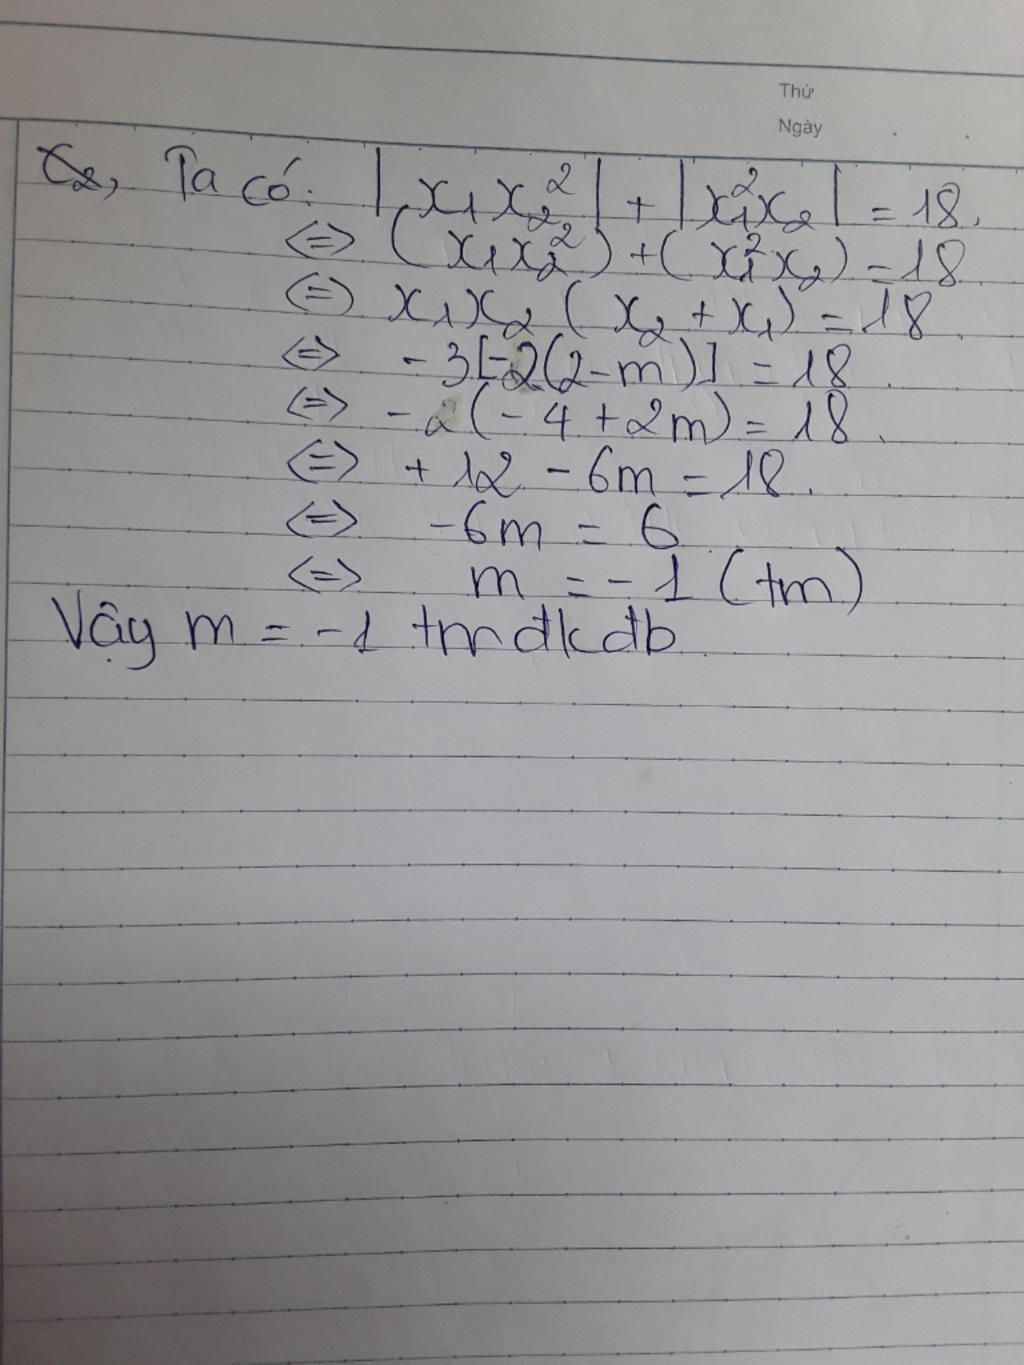 Thứ
Ngày
C2, Ta có: |x₁x₂²| + |x₁²x₂| = 18.
<=> (x₁x₂²) + (x₁²x₂) = 18
<=> x₁x₂ (x₂ + x₁) = 18.
<=> -3[-2(2-m)] = 18.
<=> -2(-4 + 2m) = 18.
<=> +12 - 6m = 18.
<=> -6m = 6
<=> m = -1 (tm)
Vậy m = -1 tmđkđb.